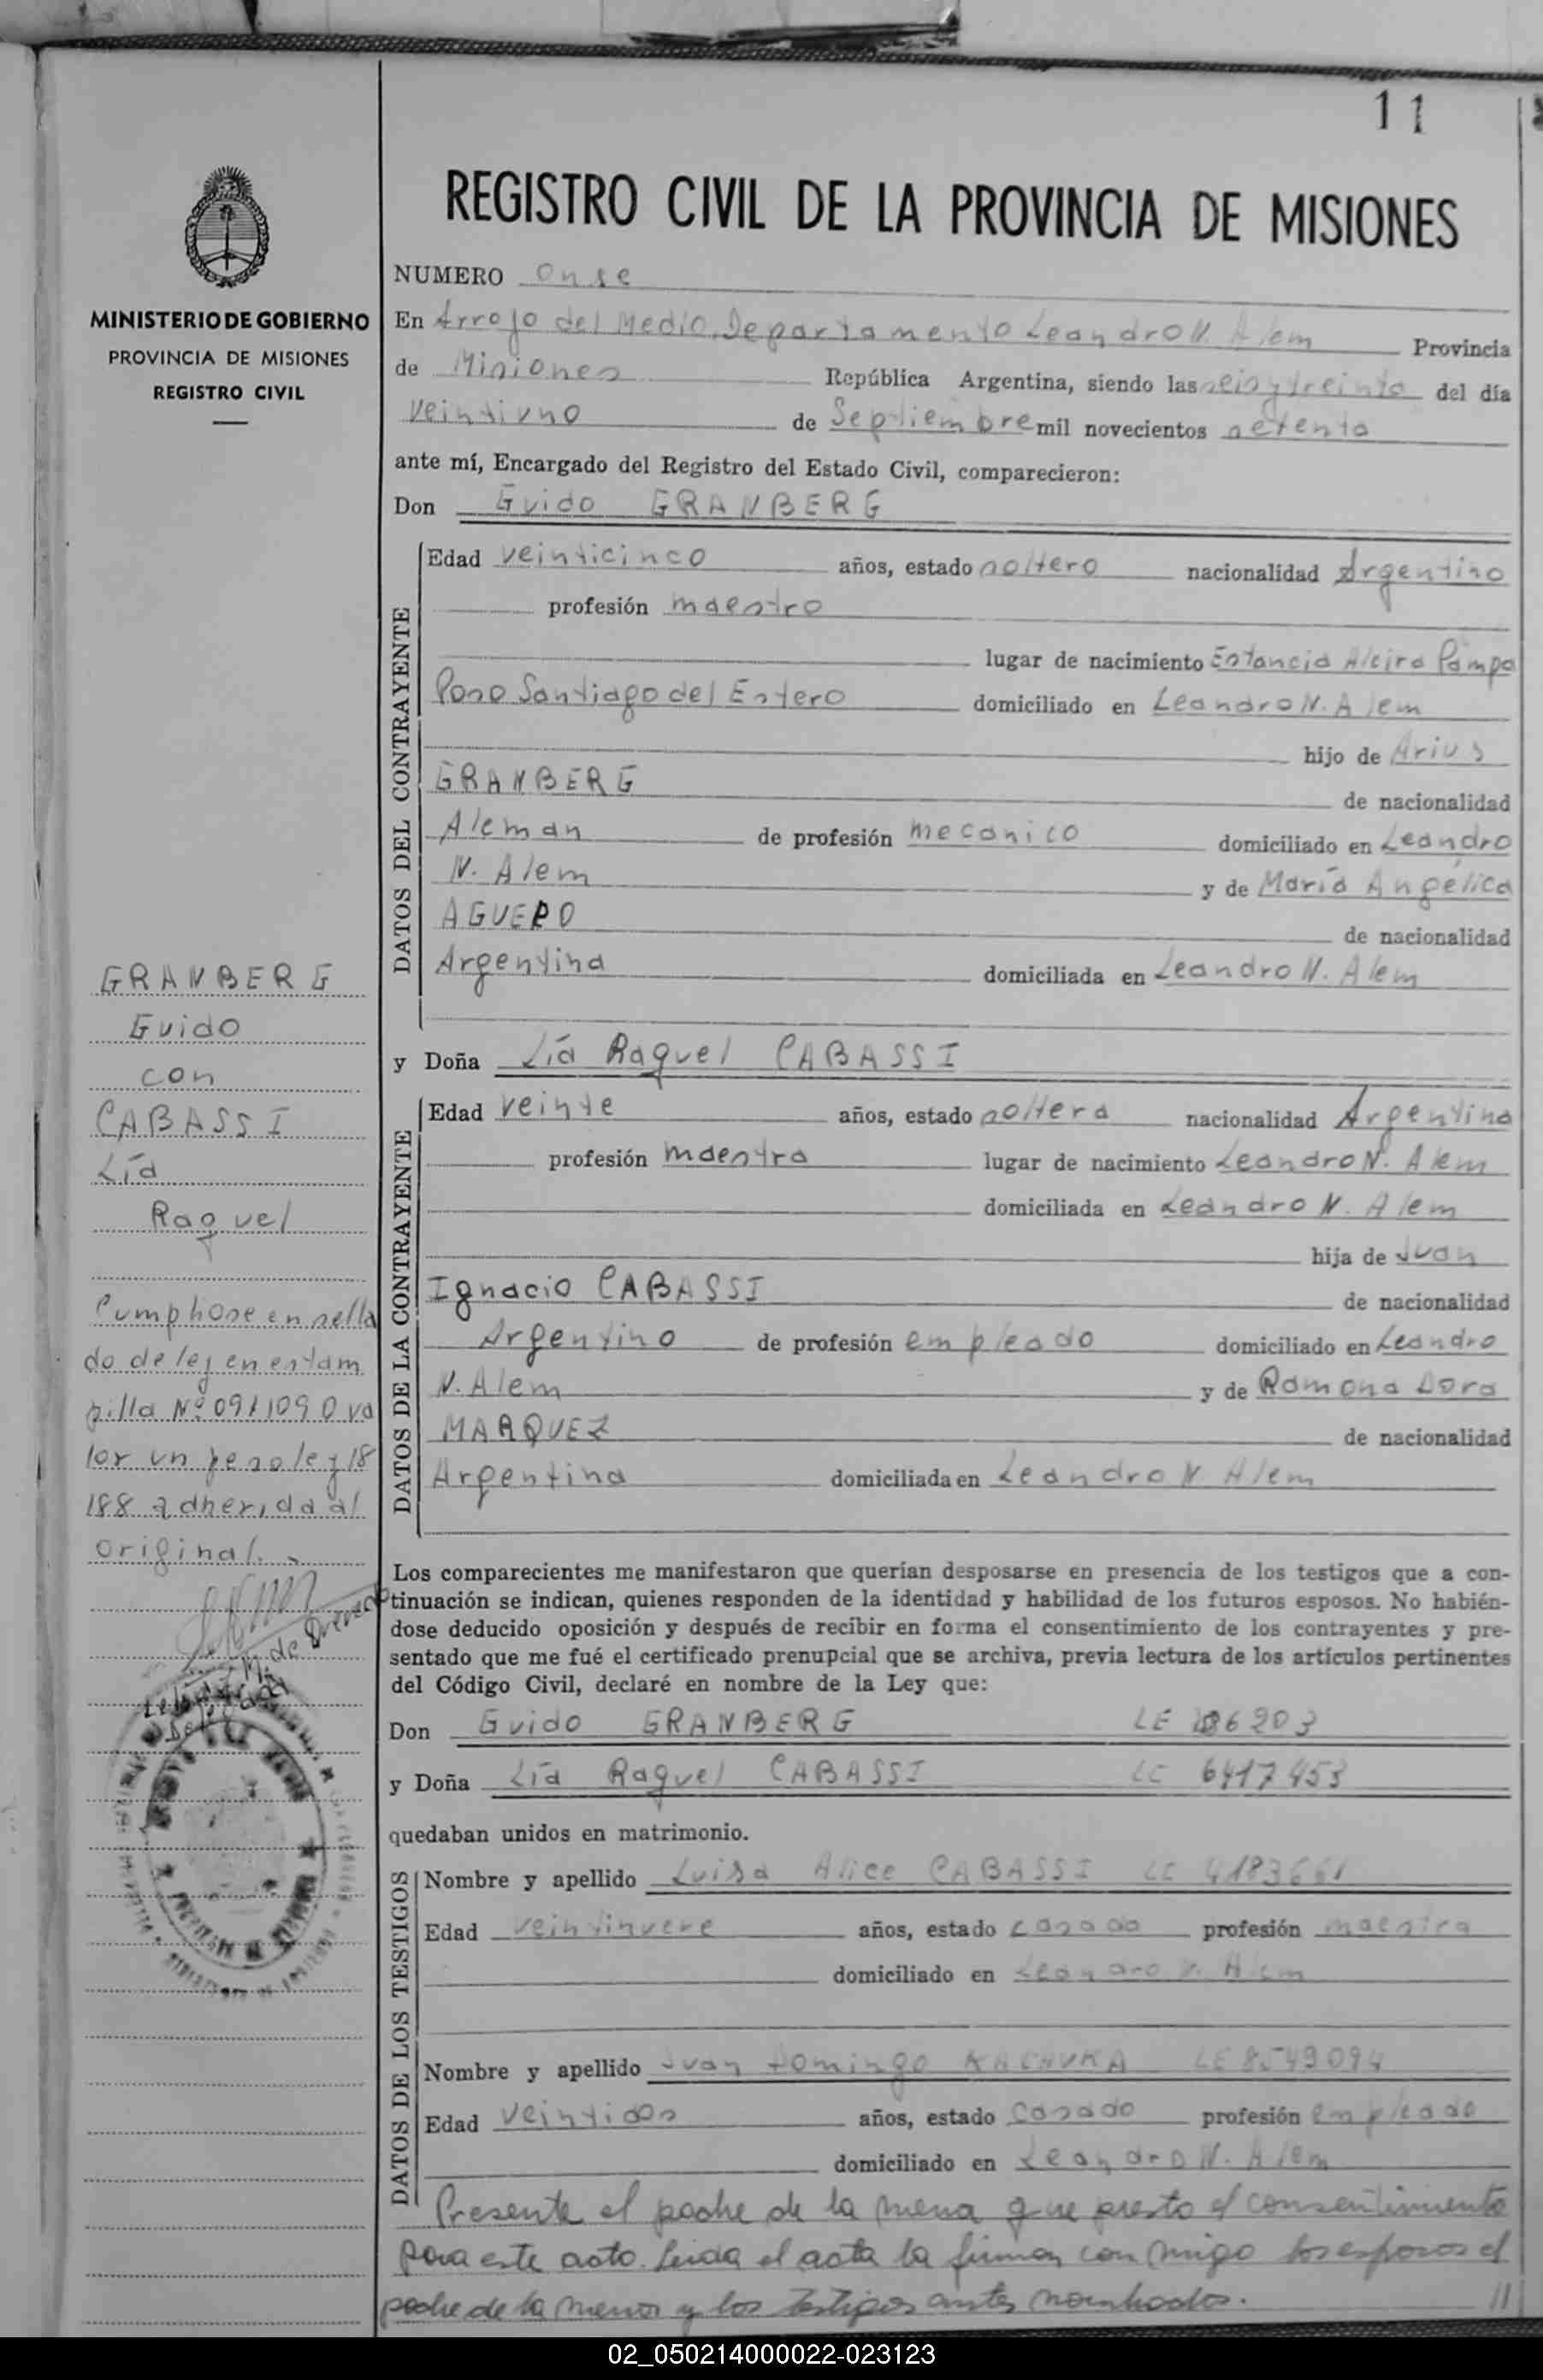 11
REGISTRO CIVIL DE LA PROVINCIA DE MISIONES
MINISTERIO DE GOBIERNO
PROVINCIA DE MISIONES
REGISTRO CIVIL
NUMERO onse
En Arrojo del Medio, Departamento Leandro N. Alem Provincia
de Misiones República Argentina, siendo las seis y treinta del día
veintiuno de Septiembre mil novecientos setenta
ante mí, Encargado del Registro del Estado Civil, comparecieron:
Don Guido GRANBERG
DATOS DEL CONTRAYENTE
Edad veinticinco años, estado soltero nacionalidad Argentino
profesión maestro
lugar de nacimiento Estancia Alcira Pampa
Poso Santiago del Estero domiciliado en Leandro N. Alem
hijo de Arius
GRANBERG de nacionalidad
Aleman de profesión mecanico domiciliado en Leandro
N. Alem y de María Angélica
AGUERO de nacionalidad
Argentina domiciliada en Leandro N. Alem
y Doña Lía Raquel CABASSI
DATOS DE LA CONTRAYENTE
Edad veinte años, estado soltera nacionalidad Argentina
profesión maestra lugar de nacimiento Leandro N. Alem
domiciliada en Leandro N. Alem
hija de Juan
Ignacio CABASSI de nacionalidad
Argentino de profesión empleado domiciliado en Leandro
N. Alem y de Ramona Dora
MARQUEZ de nacionalidad
Argentina domiciliada en Leandro N. Alem
GRANBERG
Guido
con
CABASSI
Lía
Raquel
Cumphose en sella
do de lej en estam
pilla Nº 0911090 va
lor un peso lej 18
188 adherida al
original.
Los comparecientes me manifestaron que querían desposarse en presencia de los testigos que a con-
tinuación se indican, quienes responden de la identidad y habilidad de los futuros esposos. No habién-
dose deducido oposición y después de recibir en forma el consentimiento de los contrayentes y pre-
sentado que me fué el certificado prenupcial que se archiva, previa lectura de los artículos pertinentes
del Código Civil, declaré en nombre de la Ley que:
Don Guido GRANBERG LE
y Doña Lía Raquel CABASSI LC 6417453
quedaban unidos en matrimonio.
DATOS DE LOS TESTIGOS
Nombre y apellido Luisa Alice CABASSI LC 4183661
Edad veintinueve años, estado casada profesión maestra
domiciliado en Leandro N. Alem
Nombre y apellido Juan Domingo LE 8549094
Edad veintidos años, estado casado profesión empleado
domiciliado en Leandro N. Alem
Presente el padre de la menor que presto el consentimiento
para este acto. Leida el acta la firman con migo los esposos el
padre de la menor y los testigos antes nombrados. 11
02_050214000022-023123